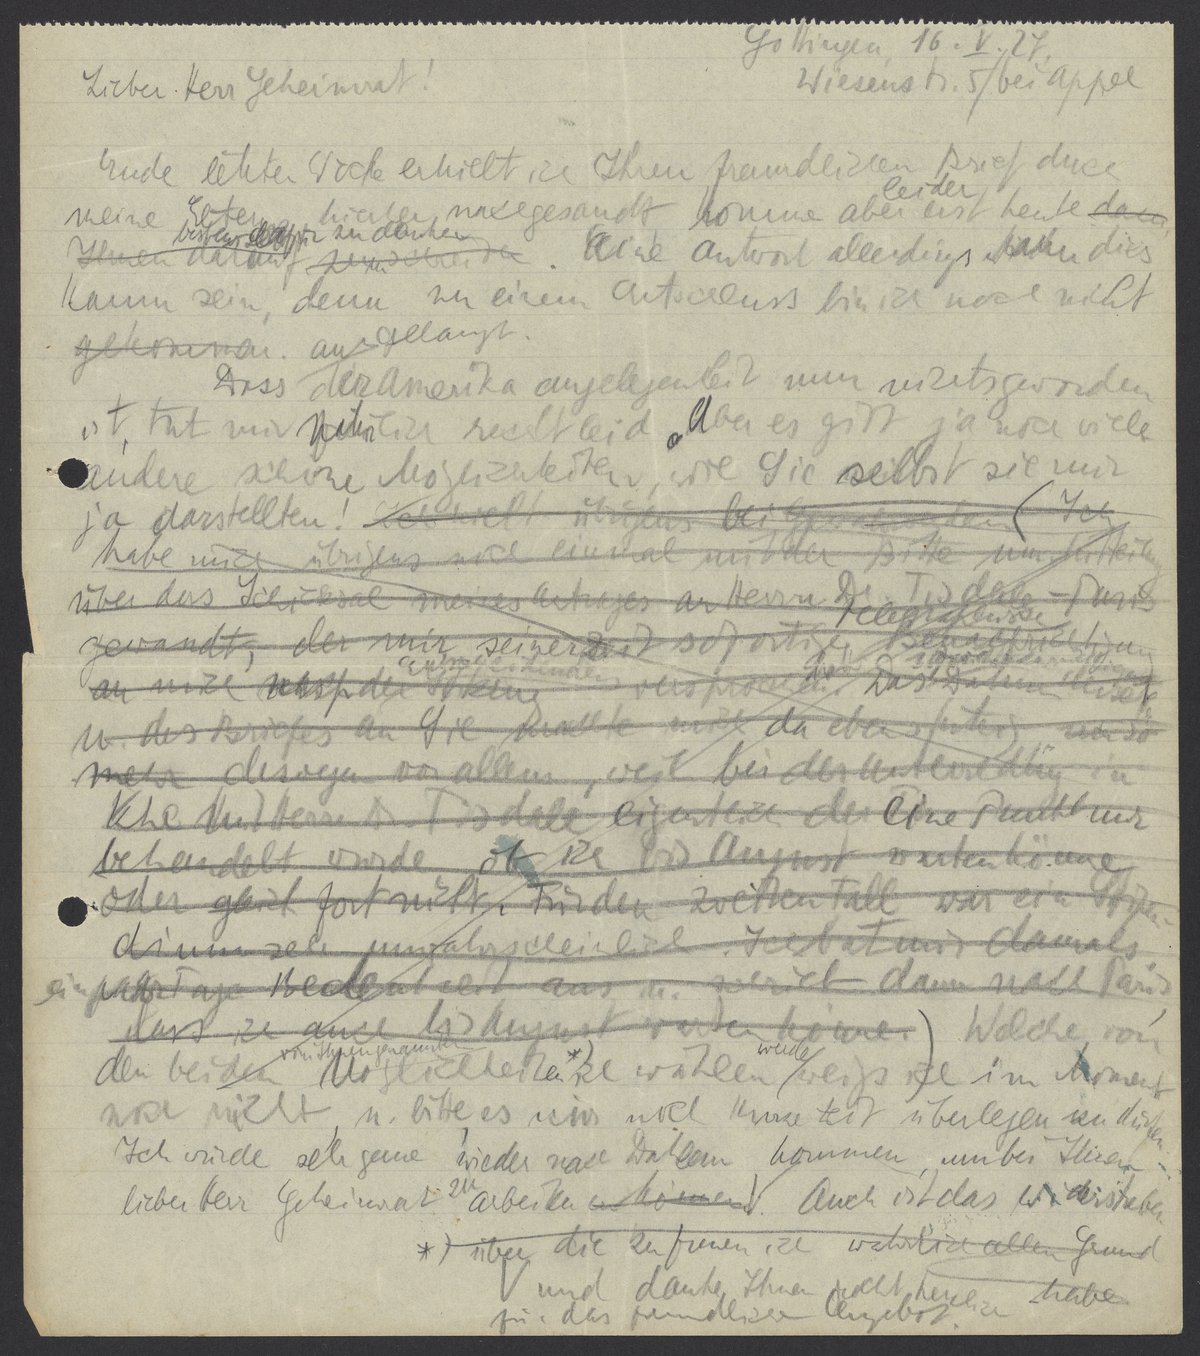 Göttingen, 16. V. 27.
Wiesenstr. 5/ bei Appel
Lieber Herr Geheimrat!
Ende letzter Woche erhielt ich Ihren freundlichen Brief durch
leider
meine Eltern hierher nachgesandt komme aber erst heute dazu,
bestens dafür zu danken
Ihnen darauf zu schreiben. Eine Antwort allerdings kann dies
kaum sein, denn zu einem Entschluss bin ich noch nicht
gekommen. angelangt.
Dass der Amerikaangelegenheit nun nichts geworden
ist, tut mir natürlich recht leid. Aber es gibt ja noch viele
andere schöne Möglichkeiten, wie Sie selbst sie mir
ja darstellten! übrigens bei (Ich
habe mich übrigens noch einmal mit der Bitte um Mitteilung
über das Schicksal meines Antrages an Herrn Dr. Tisdale - Paris
telegrafische
gewandt, der mir seinerzeit sofortige Benachrichtigung
an mich versprochen. Das Datum
u. des Briefes an Sie machte mich da eben stutzig umso
mehr deswegen vor allem, weil bei der Unterredung in
Khe mit Herrn Dr. Tisdale eigentlich der eine Punkt nur
behandelt wurde, ob ich bis August warten könne
oder gleich fort müßte. Für den zweiten Fall war ein Stipen-
dium sehr unwahrscheinlich. Ich bat mir damals
ein paar Tage Bedenkzeit aus u. schrieb dann nach Paris
dass ich auch bis August warten könne.) Welche von
von Ihnen genannten werde
den beiden Möglichkeiten *) ich wählen weiß ich im Moment
noch nicht, u. bitte es mir noch kurze Zeit überlegen zu dürfen.
Ich würde sehr gerne wieder nach Dahlem kommen, um bei Ihnen
lieber Herr Geheimrat zu arbeiten können. Auch ist das
*) über die zu freuen ich wahrlich allen Grund
habe
und danke Ihnen recht herzlich
für das freundliche Angebot.